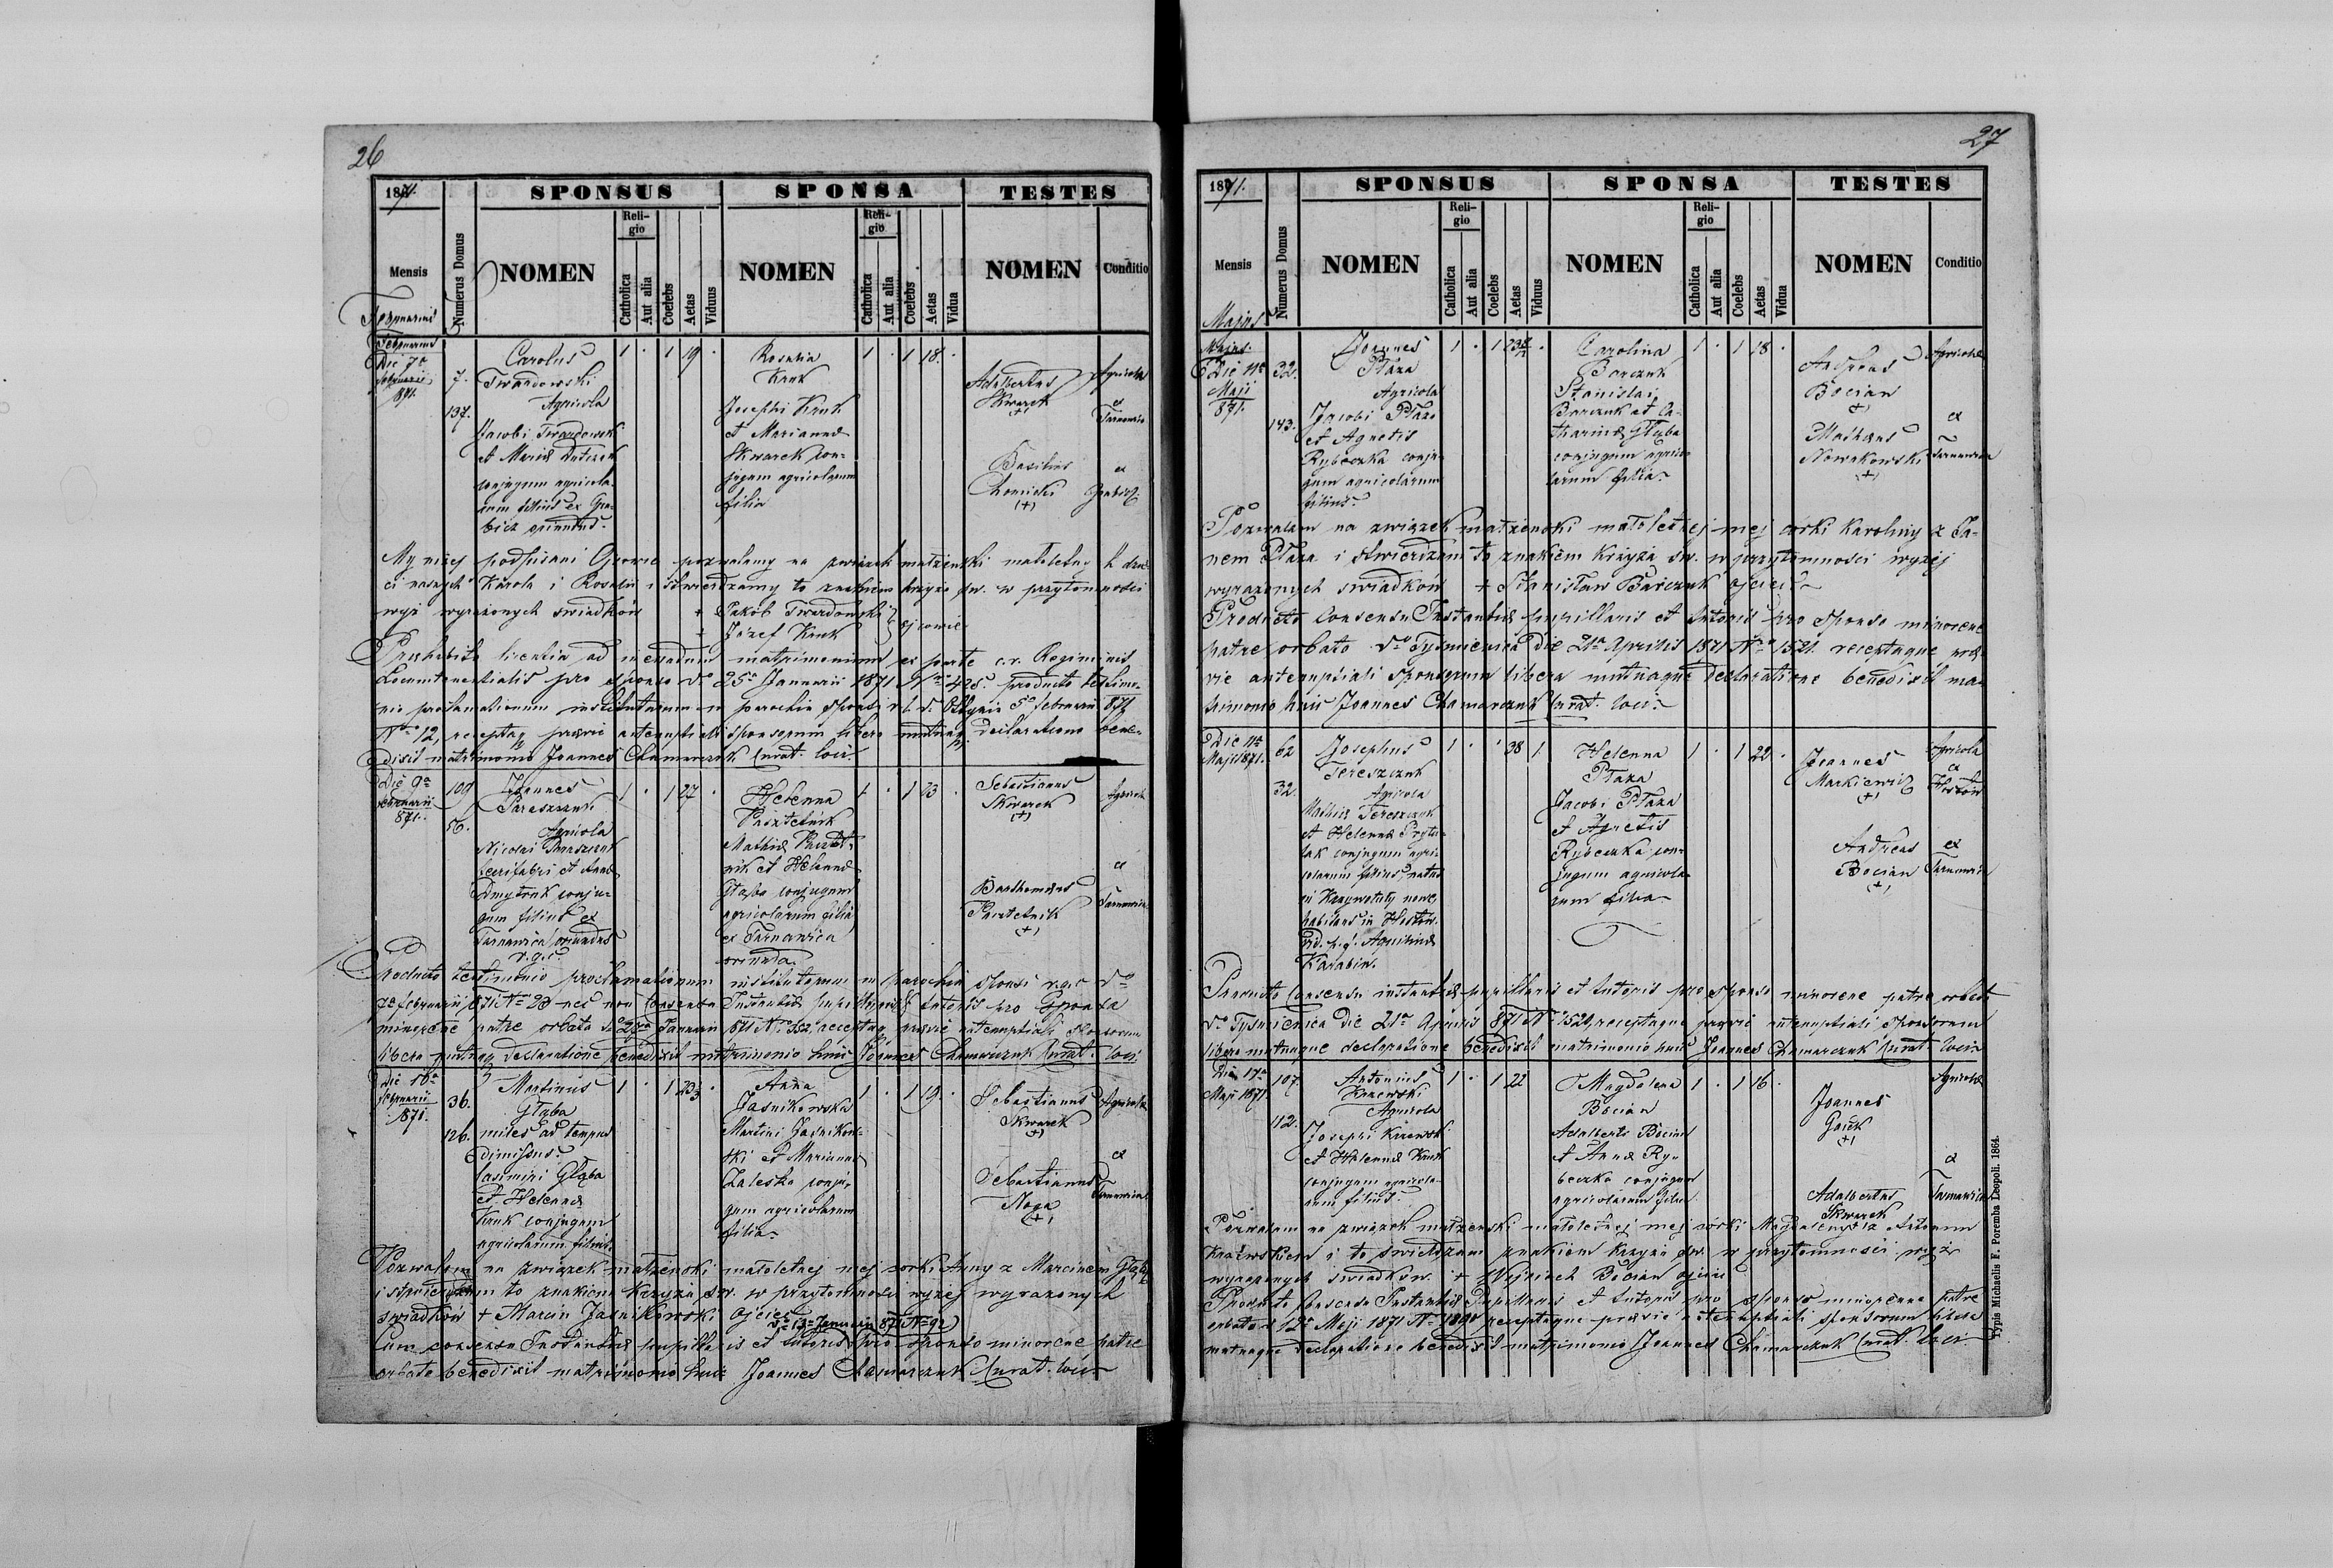 26
1871.
SPONSUS
SPONSA
TESTES
Mensis
Numerus Domus
NOMEN
Religio
Catholica
Aut alia
Coelebs
Aetas
Viduus
NOMEN
Religio
Catholica
Aut alia
Coelebs
Aetas
Vidua
NOMEN
Conditio
Februarius
Februarius
Die 7a
Februarii
871.
7.
137.
Carolus
Twardowski
Agricola
Jacobi Twardowski
et Mariæ
conjugum agricola-
rum filius ex Gra-
bicz oriundus.
1 . 1 19 .
Rosalia
Kruk
Josephi Kruk
et Mariannæ
Skwarek con-
jugum agricolarum
filia
1 . 1 18 .
Adalbertus
Skwarek
(+)
Basilius
Chomicki
(+)
Agricolæ
ex
Tarnawica
ex
Grabicz
My niżej podpisani Ojcowie pozwalamy na związek małżeński małoletnych dzie
ci naszych Karola i Rosalii i stwierdzamy to znakiem krzyża św. w przytomności
wyż wyrażonych świadków + Jakób Twardowski
+ Józef Kruk ojcowie
Præhabita licentia ad ineundum matrimonium ex parte c.r. Regiminis
Locumtenentialis pro sponso do 25a Januarii 1871 Nro 425. producto testimo-
nio proclamationum institutarum in parochia sponsi r.l. do Ottynia 5a Februarii 871
Nro 12, receptaq prævie antenuptiali sponsorum libera mutuaq declaratione bene-
dixit matrimonio Joannes Chamarczuk Curat. loci.
Die 9a
Februarii
871.
109
56.
Joannes
Paraszczuk
Agricola
Nicolai Paraszczuk
ferrifabri et Annæ
Dmytruk conju-
gum filius ex
Tarnawica oriundus
r.g.c.
1 . 1 27 .
Helenna
Pasztetnik
Mathiæ Pasztet-
nik et Helennæ
Głąba conjugum
agricolarum filia
ex Tarnawica
oriunda.
1 . 1 23 .
Sebastianus
Skwarek
(+)
Bartholomæus
Pasztetnik
(+)
Agricolæ
ex
Tarnawica
Producto testimonio proclamationum institutarum in parochia sponsi r.g.c do
7a Februarii 871 Nro 20 nec non consensu Instantiæ pupillaris et tutoris pro Sponsa
minorene patre orbata Januarii 871 Nro receptaq prævie antenuptiali sponsorum
libera mutuaq declaratione benedixit matrimonio huic Joannes Chamarczuk Curat. loci
Die 16a
Februarii
1871.
36.
126.
Martinus
Głąba
miles ad tempus
dimissus
Casimiri Głąba
et Helennæ
Kruk conjugum
agricolarum filius.
1 . 1 23 .
Anna
Jasnikowska
Martini Jasnikow-
ski et Mariannæ
Zaleska conju-
gum agricolarum
filia
1 . 1 19 .
Sebastianus
Skwarek
(+)
Sebastianus
Noga
(+)
Agricolæ
ex
Tarnawica
Pozwalam na związek małżeński małoletnej mej córki Anny z Marcinem Głąbą
i stwierdzam to znakiem krzyża św. w przytomności wyżej wyrażonych
świadków + Marcin Jasnikowski ojciec
do 13a Januarii 871 Nro 92
Cum consensu Instantiæ pupillaris et tutoris pro sponso minorene patre
orbato benedixit matrimonio huic Joannes Chamarczuk Curat. loci
27
1871.
SPONSUS
SPONSA
TESTES
Mensis
Numerus Domus
NOMEN
Religio
Catholica
Aut alia
Coelebs
Aetas
Viduus
NOMEN
Religio
Catholica
Aut alia
Coelebs
Aetas
Vidua
NOMEN
Conditio
Majus
Majus.
Die 11a
Maji
871.
32.
143.
Joannes
Płaza
Agricola
Jacobi Płaza
et Agnetis
Rybeczka conju-
gum agricolarum
filius.
1 . 1 23 .
Carolina
Barczuk
Stanislai
Barczuk et Ca-
tharinæ Głąba
conjugum agrico-
larum filia
1 . 1 18 .
Andreas
Bocian
(+)
Mathæus
Nowakowski
(+)
Agricolæ
ex
Tarnawica
Pozwalam na związek małżeński małoletniej mej córki Karoliny z Ja-
nem Płaza i stwierdzam to znakiem krzyża św. w przytomności wyżej
wyrażonych świadków + Stanisław Barczuk ojciec
Producto Consensu Instantiæ pupillaris et tutoris pro sponso minorene
patre orbato do Tyśmienica die 21a Aprilis 1871 Nro 1521. receptaque præ-
vie antenuptiali sponsorum libera mutuaque declaratione benedixit ma-
trimonio huic Joannes Chamarczuk Curat. loci
Die 11a
Maji 1871.
62
32.
Josephus
Tereszczuk
Agricola
Mathiæ Tereszczuk
et Helennæ
conjugum agri-
colarum filius, natus
in Krzywotuły nowe,
habitans in Hostów.
Vid. p.d. Aquilinæ
Karabin.
1 . . 38 1
Helenna
Płaza
Jacobi Płaza
et Agnetis
Rybeczka con-
jugum agricola-
rum filia
1 . 1 22 .
Joannes
Markiewicz
(+)
Andreas
Bocian
(+)
Agricola
ex
Hostów
ex
Tarnawica
Producto Consensu instantiæ pupillaris et tutoris pro sponsa minorene patre orbata
do Tyśmienica die 21a Aprilis 871 Nro 1521, receptaque prævie antenuptiali sponsorum
libera mutuaque declaratione benedixit matrimonio huic Joannes Chamarczuk Curat. loci
Die 17a
Maji 1871.
107.
112.
Antonius
Krzewski
Agricola
Josephi Krzewski
et Helennæ Kruk
conjugum agricola-
rum filius.
1 . 1 22
Magdalena
Bocian
Adalberti Bocian
et Annæ Ry-
beczka conjugum
agricolarum filia
1 . 1 16 .
Joannes
Gaick
(+)
Adalbertus
Skwarek
Agricolæ
ex
Tarnawica
Pozwalam na związek małżeński małoletniej mej córki Magdaleny z Antonim
i to świerdzam znakiem krzyża św. w przytomności wyż
wyrażonych świadków. + Wojciech Bocian ojciec
Producto Consensu Instantiæ Pupillaris et tutoris pro sponso minorenne patre
orbato d 12a Maji 1871 Nro receptaque prævie antenuptiali sponsorum libera
mutuaque declaratione benedixit matrimonio Joannes Chamarczuk Curat. loci.
Typis Michaelis F. Poremba Leopoli. 1864.